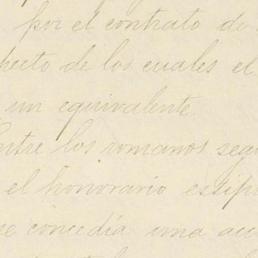 por el contrato de
pecto de los cuales el
un equivalente
Entre los romanos seg
el honorario estip
se concedía una acc